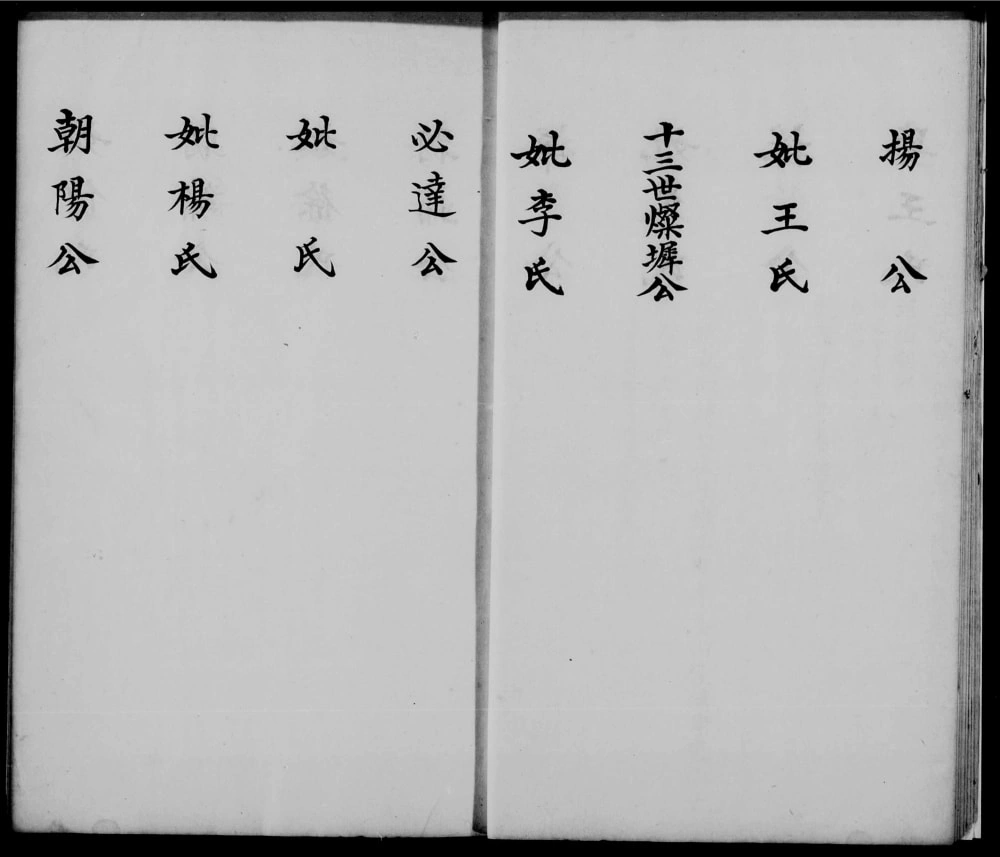 揚公
妣王氏
十三世燦墀公
妣李氏
必達公
妣 氏
妣楊氏
朝陽公